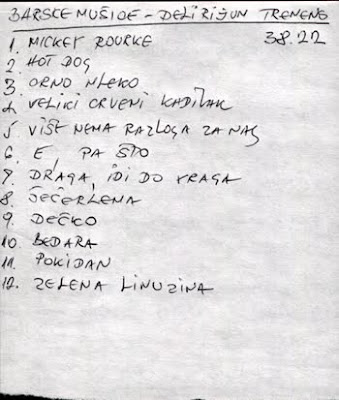 BARSKE MUŠICE - DELIRIJUN TREMENS
1. MICKEY ROURKE 38.22
2 HOT DOG
3 CRNO MLEKO
4 VELIKI CRVENI KADILAK
5 VIŠE NEMA RAZLOGA ZA NAS
6. E, PA ŠTO
7. DRAGA, IDI DO VRAGA
8. ŠEĆERLENA
9. DEČKO
10. BEDARA
11. POKIDAN
12. ZELENA LINUZINA